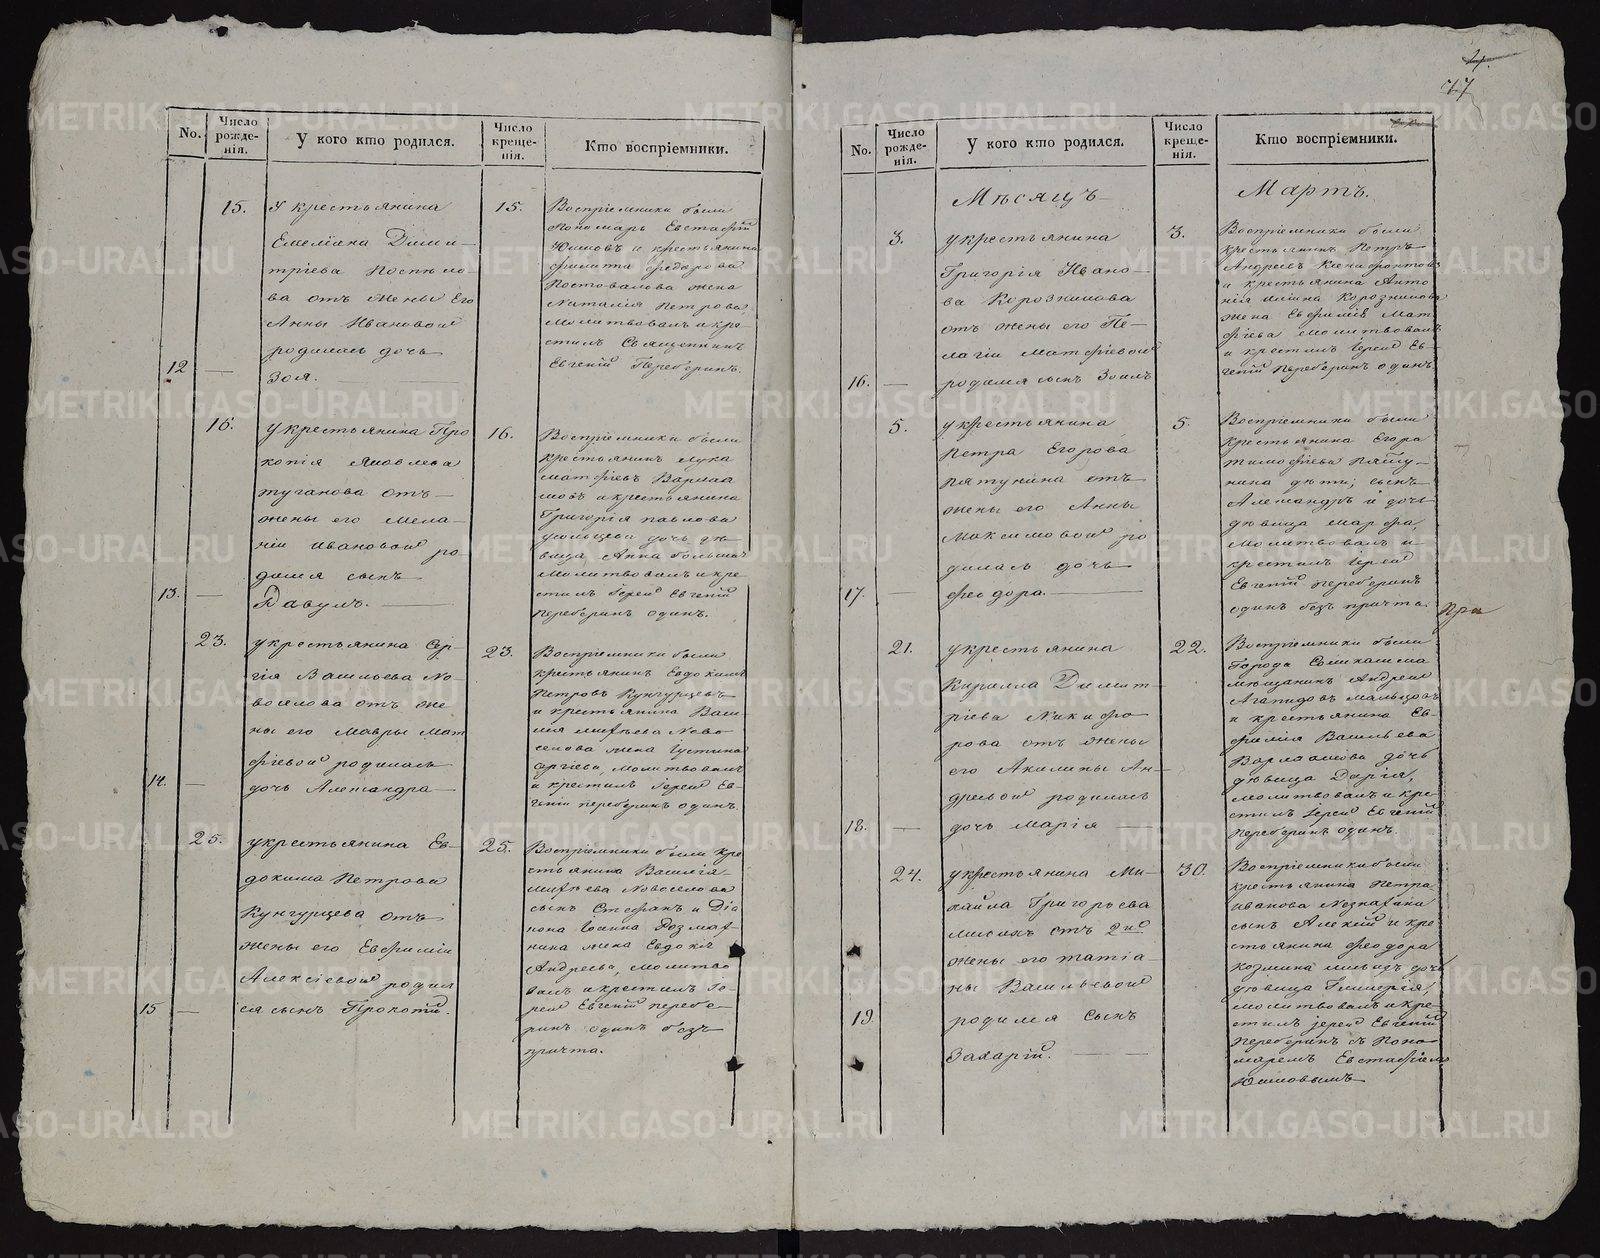 No.
Число рожде-нія.
У кого кто родился.
Число креще-нія.
Кто воспріемники.
15.
У крестьянина
Емеліана Дими-
тріева Поспѣло-
ва отъ жены его
Анны Ивановой
родилась дочь
12
Зоя.
15.
Воспріемники были
пономарь Евстафій
Юшковъ и крестьянина
Филита Федорова
Постовалова жена
Наталія Петрова,
молитвовалъ и кре-
стилъ Священникъ
Евгеній Переберинъ.
16.
у крестьянина Про
копія Яковлева
туганова отъ
жены его Мела-
ніи Ивановой ро-
дился сынъ
13.
Вавулъ.
16.
Воспріемники были
крестьянинъ Лука
Матфіевъ Варлаа
мовъ и крестьянина
Григорія павлова
дочь дѣ-
вица Анна большая
молитвовалъ и кре-
стилъ Іерей Евгеній
Переберинъ одинъ.
23.
у крестьянина Сер-
гія Васильева Но-
воселова отъ же
ны его Мавры Мат
фіевой родилась
14.
дочь Александра
23.
Воспріемники были
крестьянинъ Евдокимъ
Петровъ Кунгурцевъ
и крестьянина Васи-
лія Михѣева Ново
селова жена Іустина
Сергіева, молитвовалъ
и крестилъ Іерей Ев-
геній переберинъ одинъ.
25.
у крестьянина Ев-
докима Петрова
Кунгурцева отъ
жены его Евфиміи
Алексіевой родил
15
ся сынъ Прокопій.
25.
Воспріемники были кре
стьянина Василія
Михѣева Новоселова
сынъ Стефанъ и Діа
кона Іоанна
жена Евдокія
Андреева, молитво
валъ и крестилъ Іе-
рей Евгеній перебе-
ринъ одинъ безъ
причта.
77
No.
Число рожде-нія.
У кого кто родился.
Число креще-нія.
Кто воспріемники.
Мѣсяцъ
Мартъ.
3.
у крестьянина
Григорія Ивано-
ва Корзникова
отъ жены его Пе-
лагіи Матфіевой
16.
родился сынъ Зоилъ
3.
Воспріемники были
крестьянинъ Петръ
Андреевъ Ксенофонтовъ
и крестьянина Анто
нія Корзникова
жена Евфимія Мат
фіева молитвовалъ
и крестилъ Іерей Ев-
геній Переберинъ одинъ
5.
у крестьянина
Петра Егорова
Пятунина отъ
жены его Анны
Максимовой ро
дилась дочь
17.
феодора.
5.
Воспріемники были
крестьянина Егора
тимофіева
нина дѣти; сынъ
Александръ и дочь
дѣвица марфа,
молитвовалъ и
крестилъ Іерей
Евгеній переберинъ
одинъ безъ причта.
При
21.
у крестьянина
Кирилла Димит-
ріева Никифо
рова отъ жены
его Акилины Ан-
дреевой родилась
18.
дочь Марія
22.
Воспріемники были
города Соликамска
мѣщанинъ Андрей
Агапидовъ Мальцовъ
и крестьянина Ев-
фимія Васильева
Варлаамова дочь
дѣвица Дарія,
молитвовалъ и кре-
стилъ Іерей Евгеній
переберинъ одинъ.
24.
у крестьянина Ми-
хаила Григорьева
отъ 2ой
жены его татіа-
ны Васильевой
19.
родился Сынъ
Захарій.
30.
Воспріемники были
крестьянина Петра
Иванова
сынъ Алексій и кре
стьянина феодора
козмина дочь
дѣвица Гликерія,
молитвовалъ и кре-
стилъ іерей Евгеній
Переберинъ съ Поно
маремъ Евстафіемъ
Юшковымъ